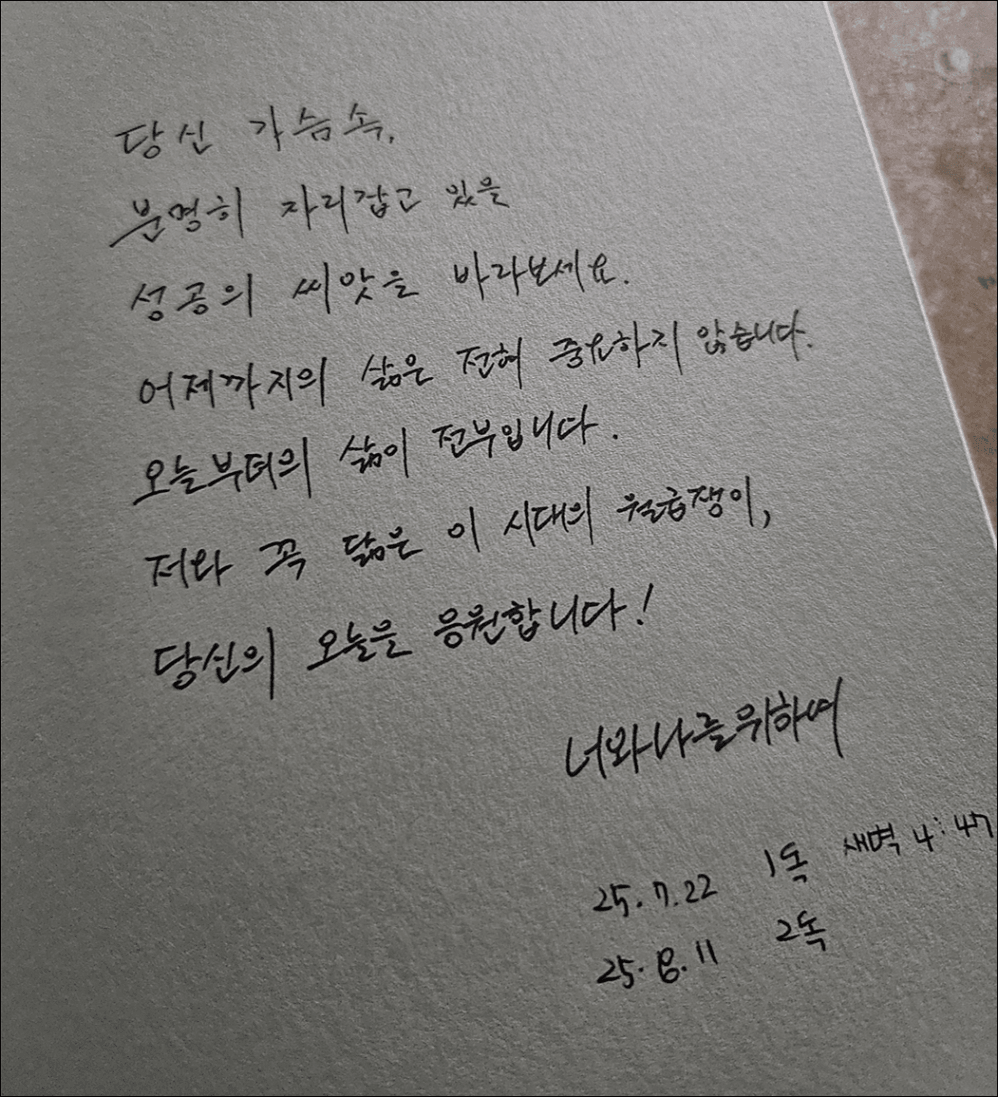 당신 가슴속,
분명히 자리잡고 있을
성공의 씨앗을 바라보세요.
어제까지의 삶은 전혀 중요하지 않습니다.
오늘부터의 삶이 전부입니다.
저와 꼭 닮은 이 시대의 월급쟁이,
당신의 오늘을 응원합니다!
너와나를위하여
25.7.22 1독 새벽 4:47
25.8.11 2독